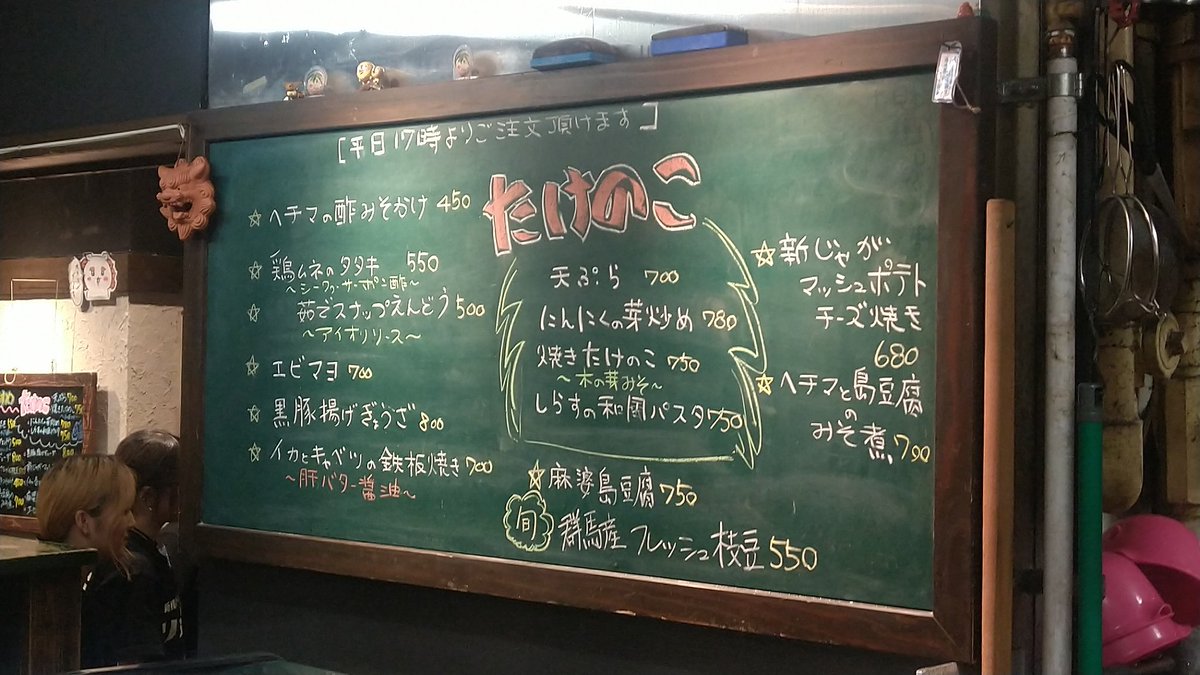 [平日17時よりご注文頂けます]
☆ヘチマの酢みそかけ 450
☆鶏ムネのタタキ 550
～シークヮーサーポン酢～
☆茹でスナップえんどう 500
～アイオリソース～
☆エビマヨ 700
☆黒豚揚げぎょうざ 800
☆イカとキャベツの鉄板焼き 700
～肝バター醤油～
たけのこ
天ぷら 700
にんにくの芽炒め 780
焼きたけのこ 750
～木の芽みそ～
しらすの和風パスタ 750
☆麻婆島豆腐 750
旬 群馬産 フレッシュ枝豆 550
☆新じゃが
マッシュポテト
チーズ焼き
680
☆ヘチマと島豆腐
の
みそ煮 700